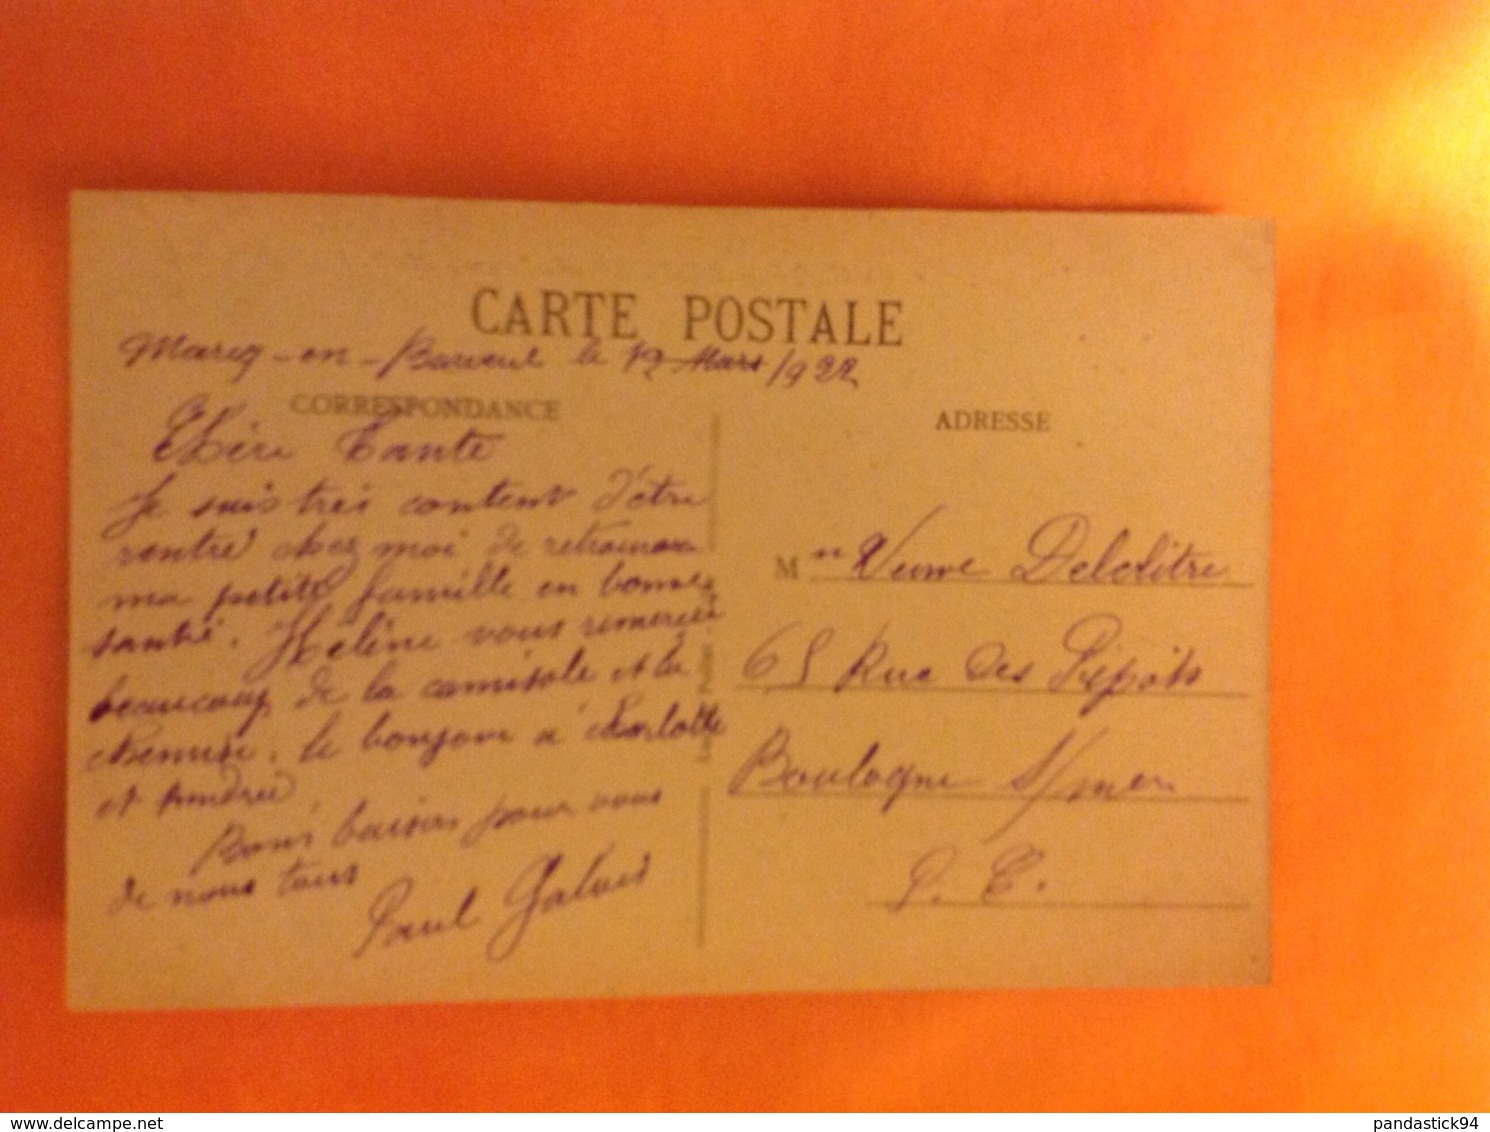 CARTE POSTALE
Marcq-en-Baroeul le 19 Mars 1922
CORRESPONDANCE
ADRESSE
Chère Tante
Je suis très content d'être
rentré chez moi de retrouver
ma petite famille en bonne
santé. Hélène vous remercie
beaucoup de la camisole et la
chemise. le bonjour à Charlotte
et Andrée
Bons baisers pour vous
de nous tous
Paul
M Veuve
65 Rue des Pipots
Boulogne s/mer
P. C.
delcampe.net
pandastick94